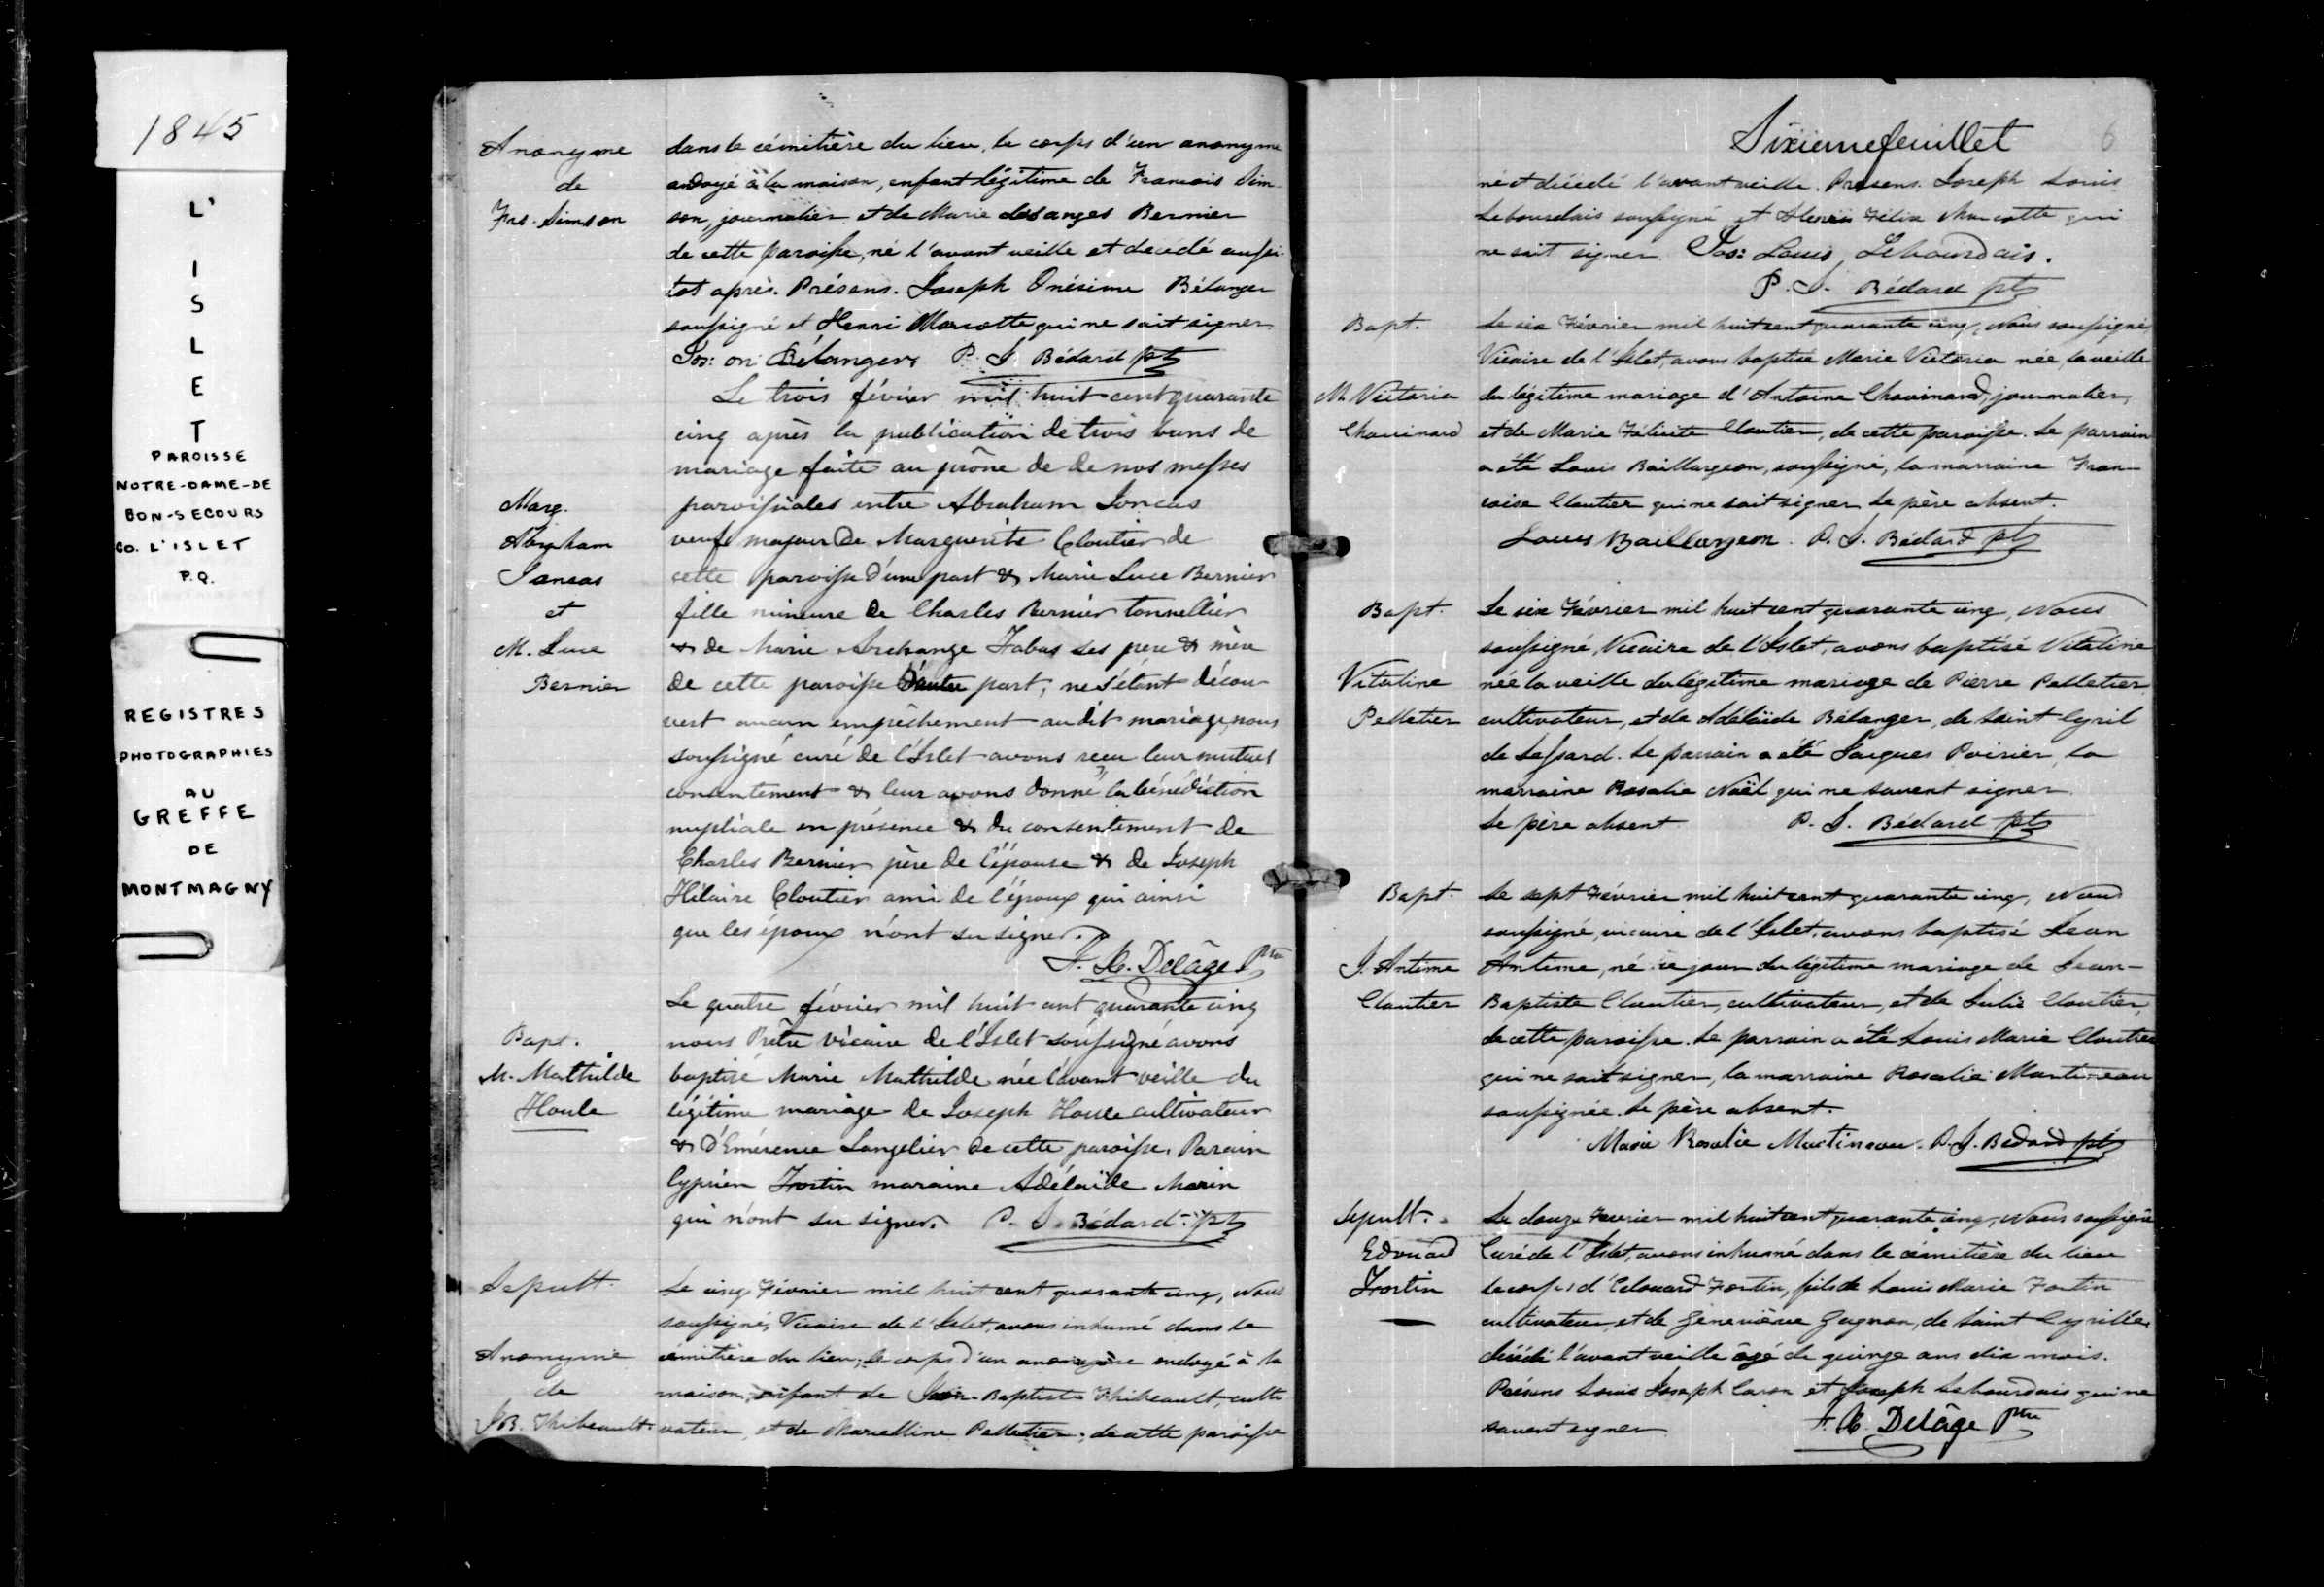 1845
L'
I
S
L
E
T
PAROISSE
NOTRE-DAME-DE
BON-SECOURS
CO. L'ISLET
P.Q.
REGISTRES
PHOTOGRAPHIES
AU
GREFFE
DE
MONTMAGNY
Anonyme
de
Frs. Simson
dans le cémitière du lieu, le corps d'un anonyme
ondoyé à la maison, enfant légitime de Francois Sim-
son, journalier et de Marie desanges Bernier
de cette paroisse, né l'avant veille et decedé aussi-
tot après. Présens. Joseph Onésime Bélanger
soussigné et Henri Marcotte qui ne sait signer
Jos: on: Bélanger P. J. Bédard ptr
Le trois février mil huit cent quarante
cinq après la publication de trois bans de
mariage faite au prône de de nos messes
Marg.
Abraham
Joncas
et
M. Luce
Bernier
paroissiales entre Abraham Joncas
veuf majeur de Marguerite Cloutier de
cette paroisse d'une part & Marie Luce Bernier
fille mineure de Charles Bernier tonnellier
& de Marie Archange Fabas ses pere & mère
de cette paroisse d'autre part; ne s'étant décou-
vert aucun empêchement au dit mariage, nous
soussigné curé de l'Islet avons reçu leur mutuel
consentement & leur avons donné la bénédiction
nuptiale en présence & du consentement de
Charles Bernier père de l'épouse & de Joseph
Hilaire Cloutier ami de l'époux qui ainsi
que les époux n'ont su signer.
F. X. Delâge Ptre
Le quatre février mil huit cent quarante cinq
Bapt.
M. Mathilde
Houle
nous Prêtre vicaire de l'Islet soussigné avons
baptisé Marie Mathilde née l'avant veille du
légitime mariage de Joseph Houle cultivateur
& d'Emérence Langelier de cette paroisse. Parain
Cyprien Fortin maraine Adélaïde Morin
qui n'ont su signer. P. J. Bédard. ptr
Sepult.
Anonyme
de
J.B. Thibeault.
Le cinq Février mil huit cent quarante cinq, Nous
soussigné, Vicaire de l'Islet, avons inhumé dans le
cémitière du lieu, le corps d'un anonyme ondoyé à la
maison, enfant de Jean-Baptiste Thibeault, culti
vateur, et de Marcelline Pelletier, de cette paroisse
Sixiemefeuillet
6
né et décédé l'avant veille. Présens. Joseph Louis
Lebourdais soussigné et Henri Félix Marcotte qui
ne sait signer. Jos: Louis Lebourdais.
P. J. Bédard ptr
Bapt.
M. Victoria
Chouinard
Le six Février mil huit cent quarante cinq, Nous soussigné,
Vicaire de l'Islet, avons baptisé Marie Victoria née, la veille
du légitime mariage d'Antoine Chouinard, journalier,
et de Marie Félicité Cloutier, de cette paroisse. Le parrain
a été Louis Baillargeon, soussigné, la marraine Fran-
coise Cloutier qui ne sait signer le père absent.
Louis Baillargeon. P. J. Bédard ptr
Bapt.
Vitaline
Pelletier
Le six Février mil huit cent quarante cinq, Nous
soussigné, Vicaire de l'Islet, avons baptisé Vitaline
née la veille du légitime mariage de Pierre Pelletier
cultivateur, et de Adélaïde Bélanger, de Saint Cyril
de Lessard. Le parrain a été Jacques Poirier, la
marraine Rosalie Noël qui ne savent signer.
Le père absent P. J. Bédard ptr
Bapt.
J. Antime
Cloutier
Le sept Février mil huit cent quarante cinq, Nous
soussigné, vicaire de l'Islet, avons baptisé Jean
Antime, né ce jour du légitime mariage de Jean-
Baptiste Cloutier, cultivateur, et de Julie Cloutier,
de cette paroisse. Le parrain a été Louis Marie Cloutier
qui ne sait signer, la marraine Rosalie Martineau
soussignée. Le père absent.
Marie Rosalie Martineau. P. J. Bédard ptr
Sepult.
Edouard
Fortin
Le douze Fevrier mil huit cent quarante cinq, Nous soussigné
Curé de l'Islet, avons inhumé dans le cémitière du lieu
le corps d'Edouard Fortin, fils de Louis Marie Fortin
cultivateur, et de Geneviève Gagnon, de Saint Cyrille,
décédé l'avant veille âgé de quinze ans dix mois.
Présens Louis Joseph Caron et Joseph Lebourdais qui ne
savent signer F. X. Delâge Ptre